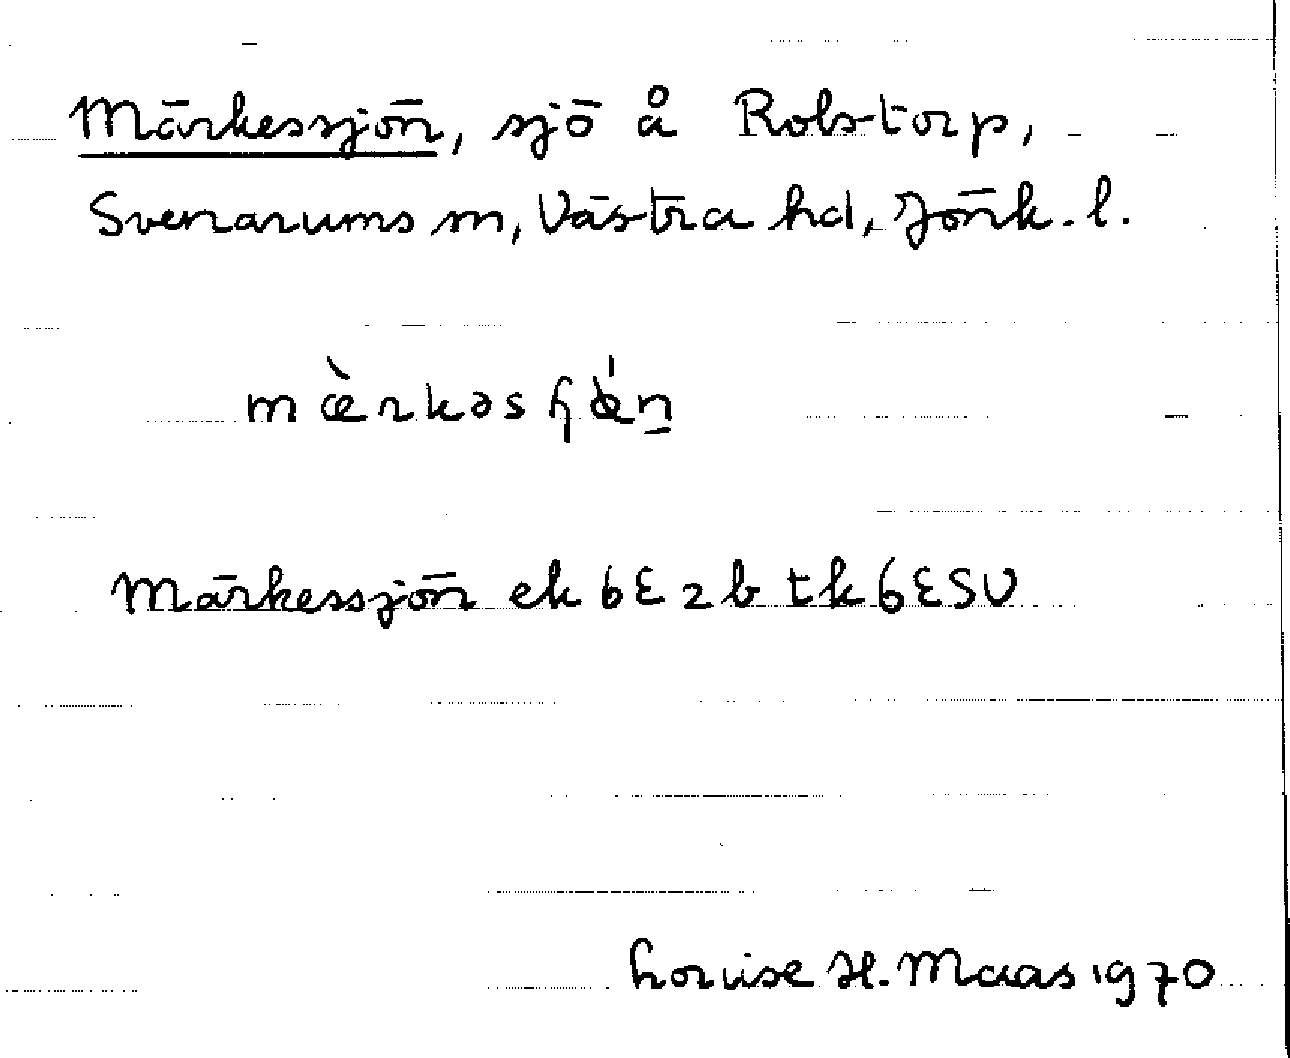 Märkessjön, sjö å Rolstorp,
Svenarums sn, Västra hd, Jönk. l.
mæ̀rkəsɧǿn
Märkessjön ek 6E2b tk6ESV
Louise H. Maas 1970